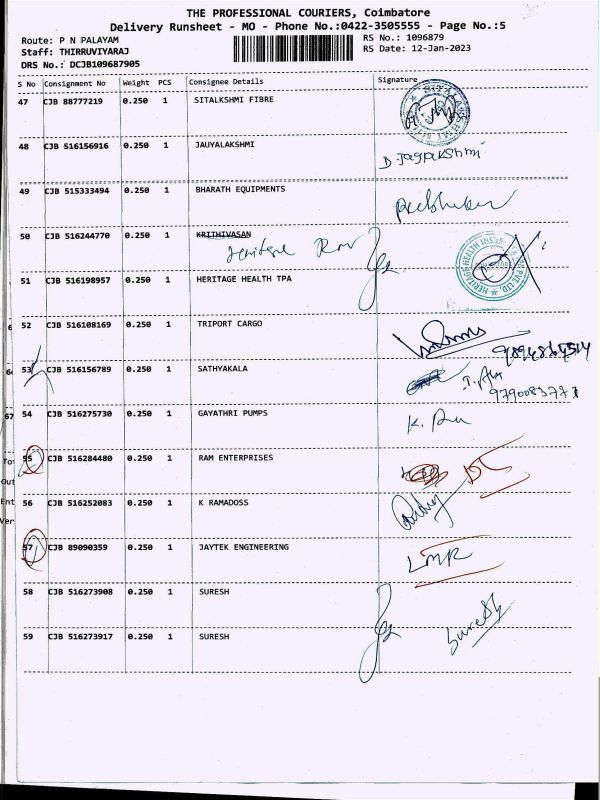 THE PROFESSIONAL COURIERS, Coimbatore
Delivery Runsheet - MO - Phone No.:0422-3505555 - Page No.:5
Route: P N PALAYAM RS No.: 1096879
Staff: THIRRUVIYARAJ RS Date: 12-Jan-2023
DRS No.: DCJB109687905
S No Consignment No Weight PCS Consignee Details Signature
47 CJB 88777219 0.250 1 SITALKSHMI FIBRE
48 CJB 516156916 0.250 1 JAUYALAKSHMI
D. Jayalakshmi
49 CJB 515333494 0.250 1 BHARATH EQUIPMENTS
50 CJB 516244770 0.250 1 KRITHIVASAN
51 CJB 516198957 0.250 1 HERITAGE HEALTH TPA
52 CJB 516108169 0.250 1 TRIPORT CARGO
53 CJB 516156789 0.250 1 SATHYAKALA
9790083771
54 CJB 516275730 0.250 1 GAYATHRI PUMPS
55 CJB 516284480 0.250 1 RAM ENTERPRISES
56 CJB 516252083 0.250 1 K RAMADOSS
57 CJB 89090359 0.250 1 JAYTEK ENGINEERING
LMR
58 CJB 516273908 0.250 1 SURESH
Suresh
59 CJB 516273917 0.250 1 SURESH